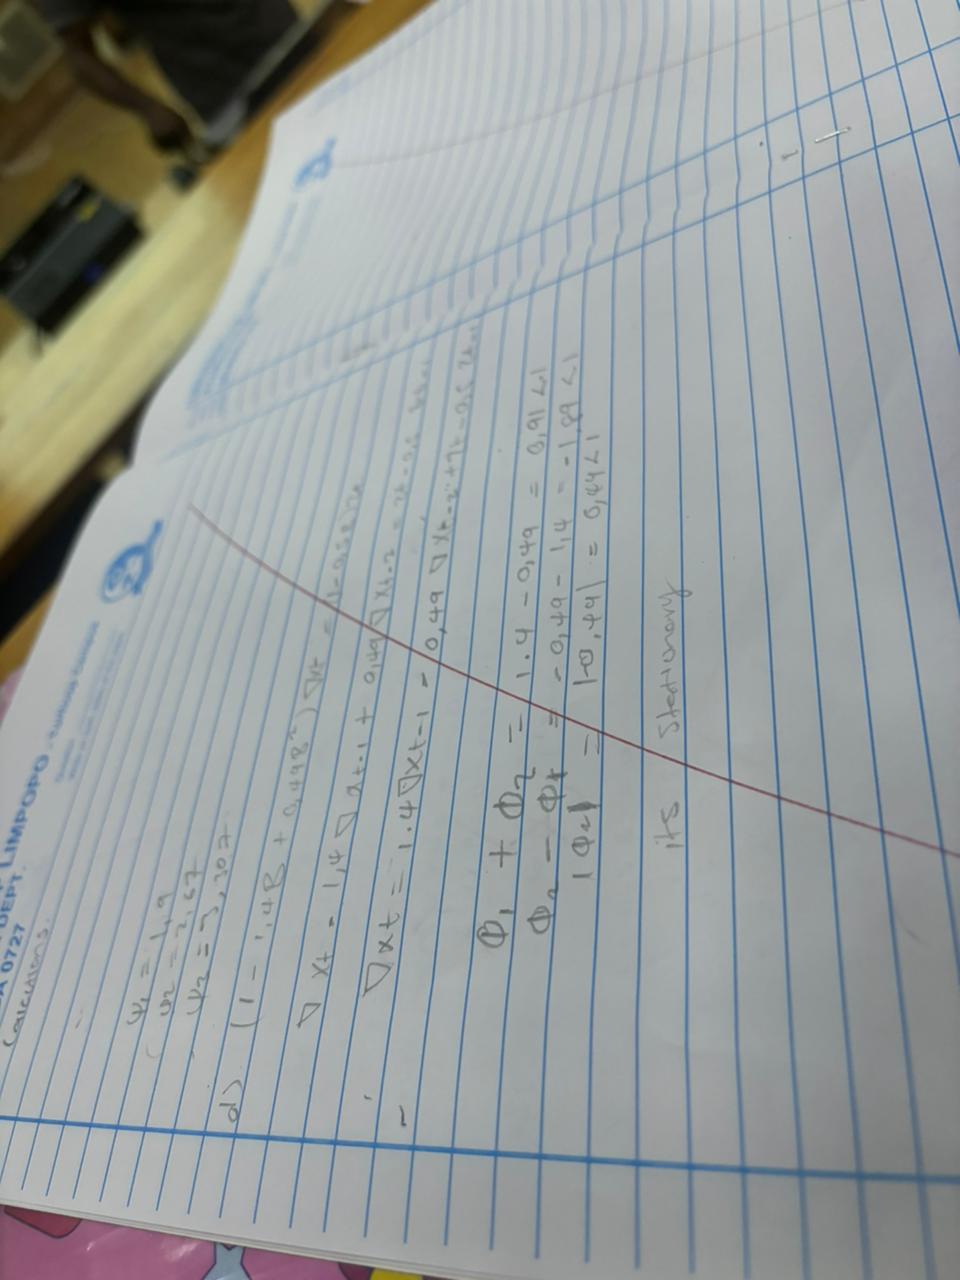 LIMPOPO
DEPT.
0727
Calculations.
ψ₁ = 1,9
ψ₂ = 2,67
ψ₂ = 3,307
d). (1 - 1,4B + 0,49B²) ∇xt = (1-0,5B)zt
∇xt - 1,4 ∇xt-1 + 0,49 ∇xt-2 = zt - 0,5 zt-1
∇xt = 1.4∇xt-1 - 0,49 ∇xt-2 + zt - 0,5 zt-1
Φ₁ + Φ₂ = 1.4 - 0,49 = 0,91 < 1
Φ₂ - Φ₁ = -0,49 - 1,4 = -1,89 < 1
|Φ₂| = |-0,49| = 0,49 < 1
its stationary